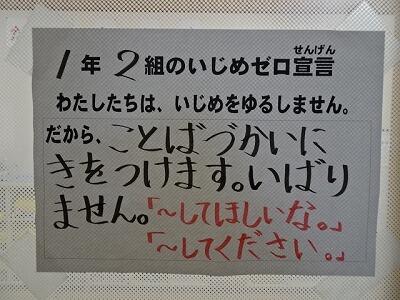 せんげん
1年2組のいじめゼロ宣言
わたしたちは、いじめをゆるしません。
だから、ことばづかいに
きをつけます。いばり
ません。「~してほしいな。」
「~してください。」